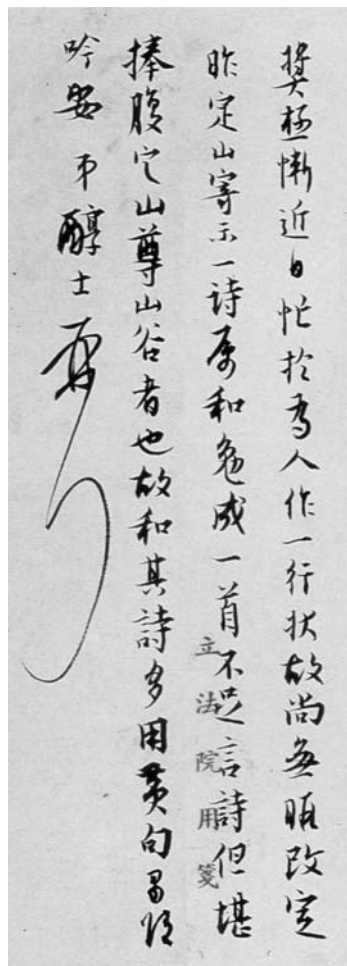 奬極慚近日忙於為人作一行狀故尚無暇改定
昨定山寄示一詩属和勉成一首不足言詩但堪
捧腹定山尊山谷者也故和其詩多用黄句即頌
吟安 弟醇士頓
立法院用箋